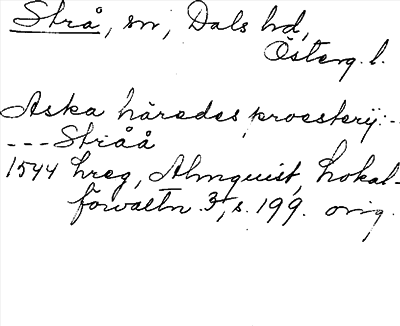 Strå, sn, Dals hd,
Österg. l.
Aska häredes proesterij:-
--- Stråå
1544 hreg, Almquist, Lokal-
förvaltn. 3, s. 199. orig.